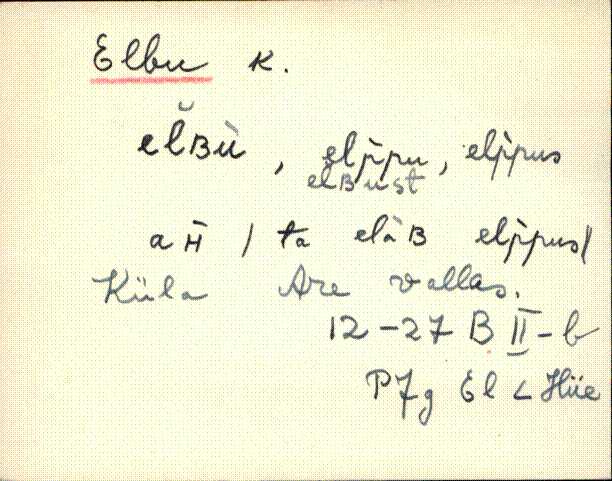 Elbu k.
el̆ʙù, elp̀pu, elp̀pus
elʙust
aH̄ / ta elàʙ elp̀pus /
Küla Are vallas.
12-27 B II-b
P7g El < Hiie